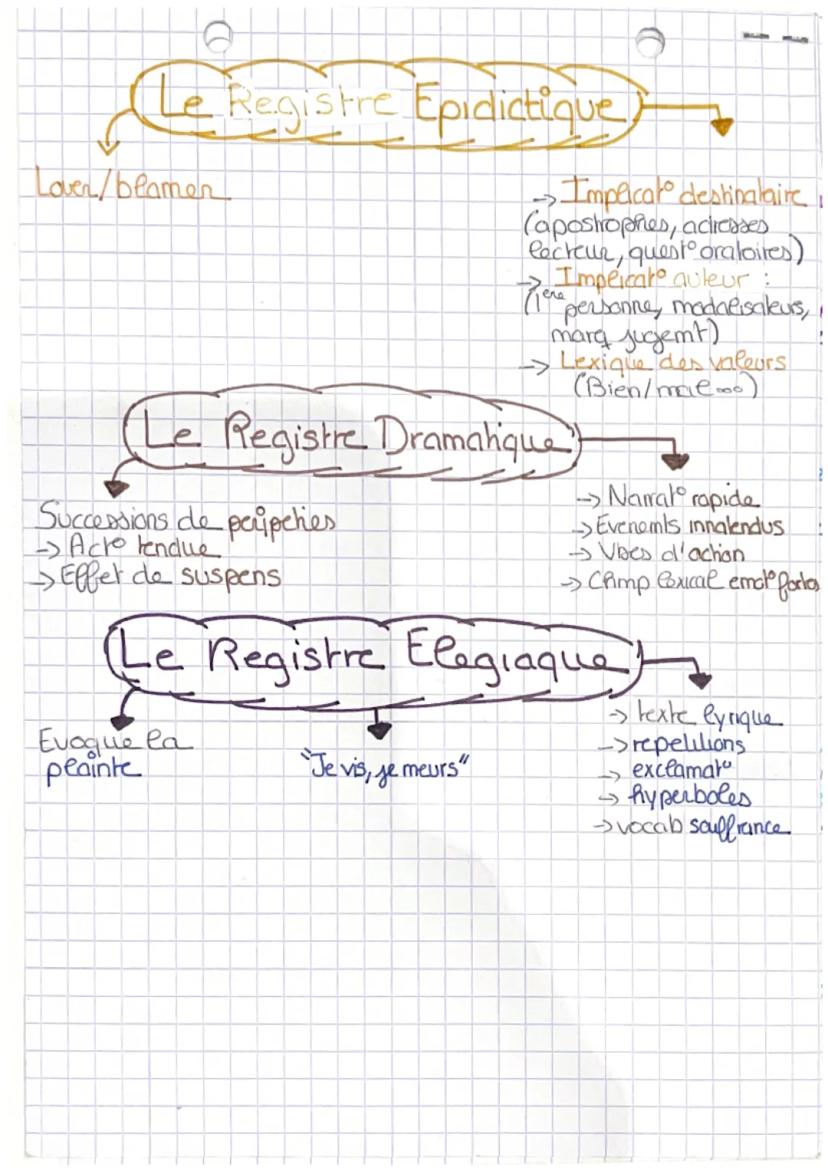 Le Registre Epidictique
Louer/blamer
-> Implicat° destinataire
(apostrophes, adresses
lecteur, quest° oratoires)
-> Implicat° auteur :
(1ere personne, modalisateurs,
marq jugemt)
-> Lexique des valeurs
(Bien/mal...)
Le Registre Dramatique
Successions de péripéties
-> Act° tendue
-> Effet de suspens
-> Narrat° rapide
-> Evenemts innatendus
-> Vbes d'action
-> Chmp lexical emot° fortes
Le Registre Elegiaque
Evoque la
plainte
"Je vis, je meurs"
-> texte lyrique
-> repetitions
-> exclamat°
-> hyperboles
-> vocab souffrance